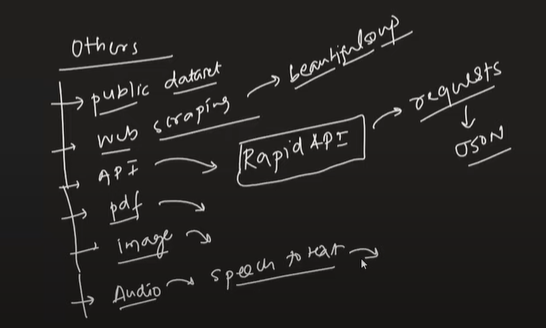 Others
public dataset
web scraping → beautifulsoup
API → Rapid API → requests
↓
JSON
pdf →
image →
Audio → speech to text →